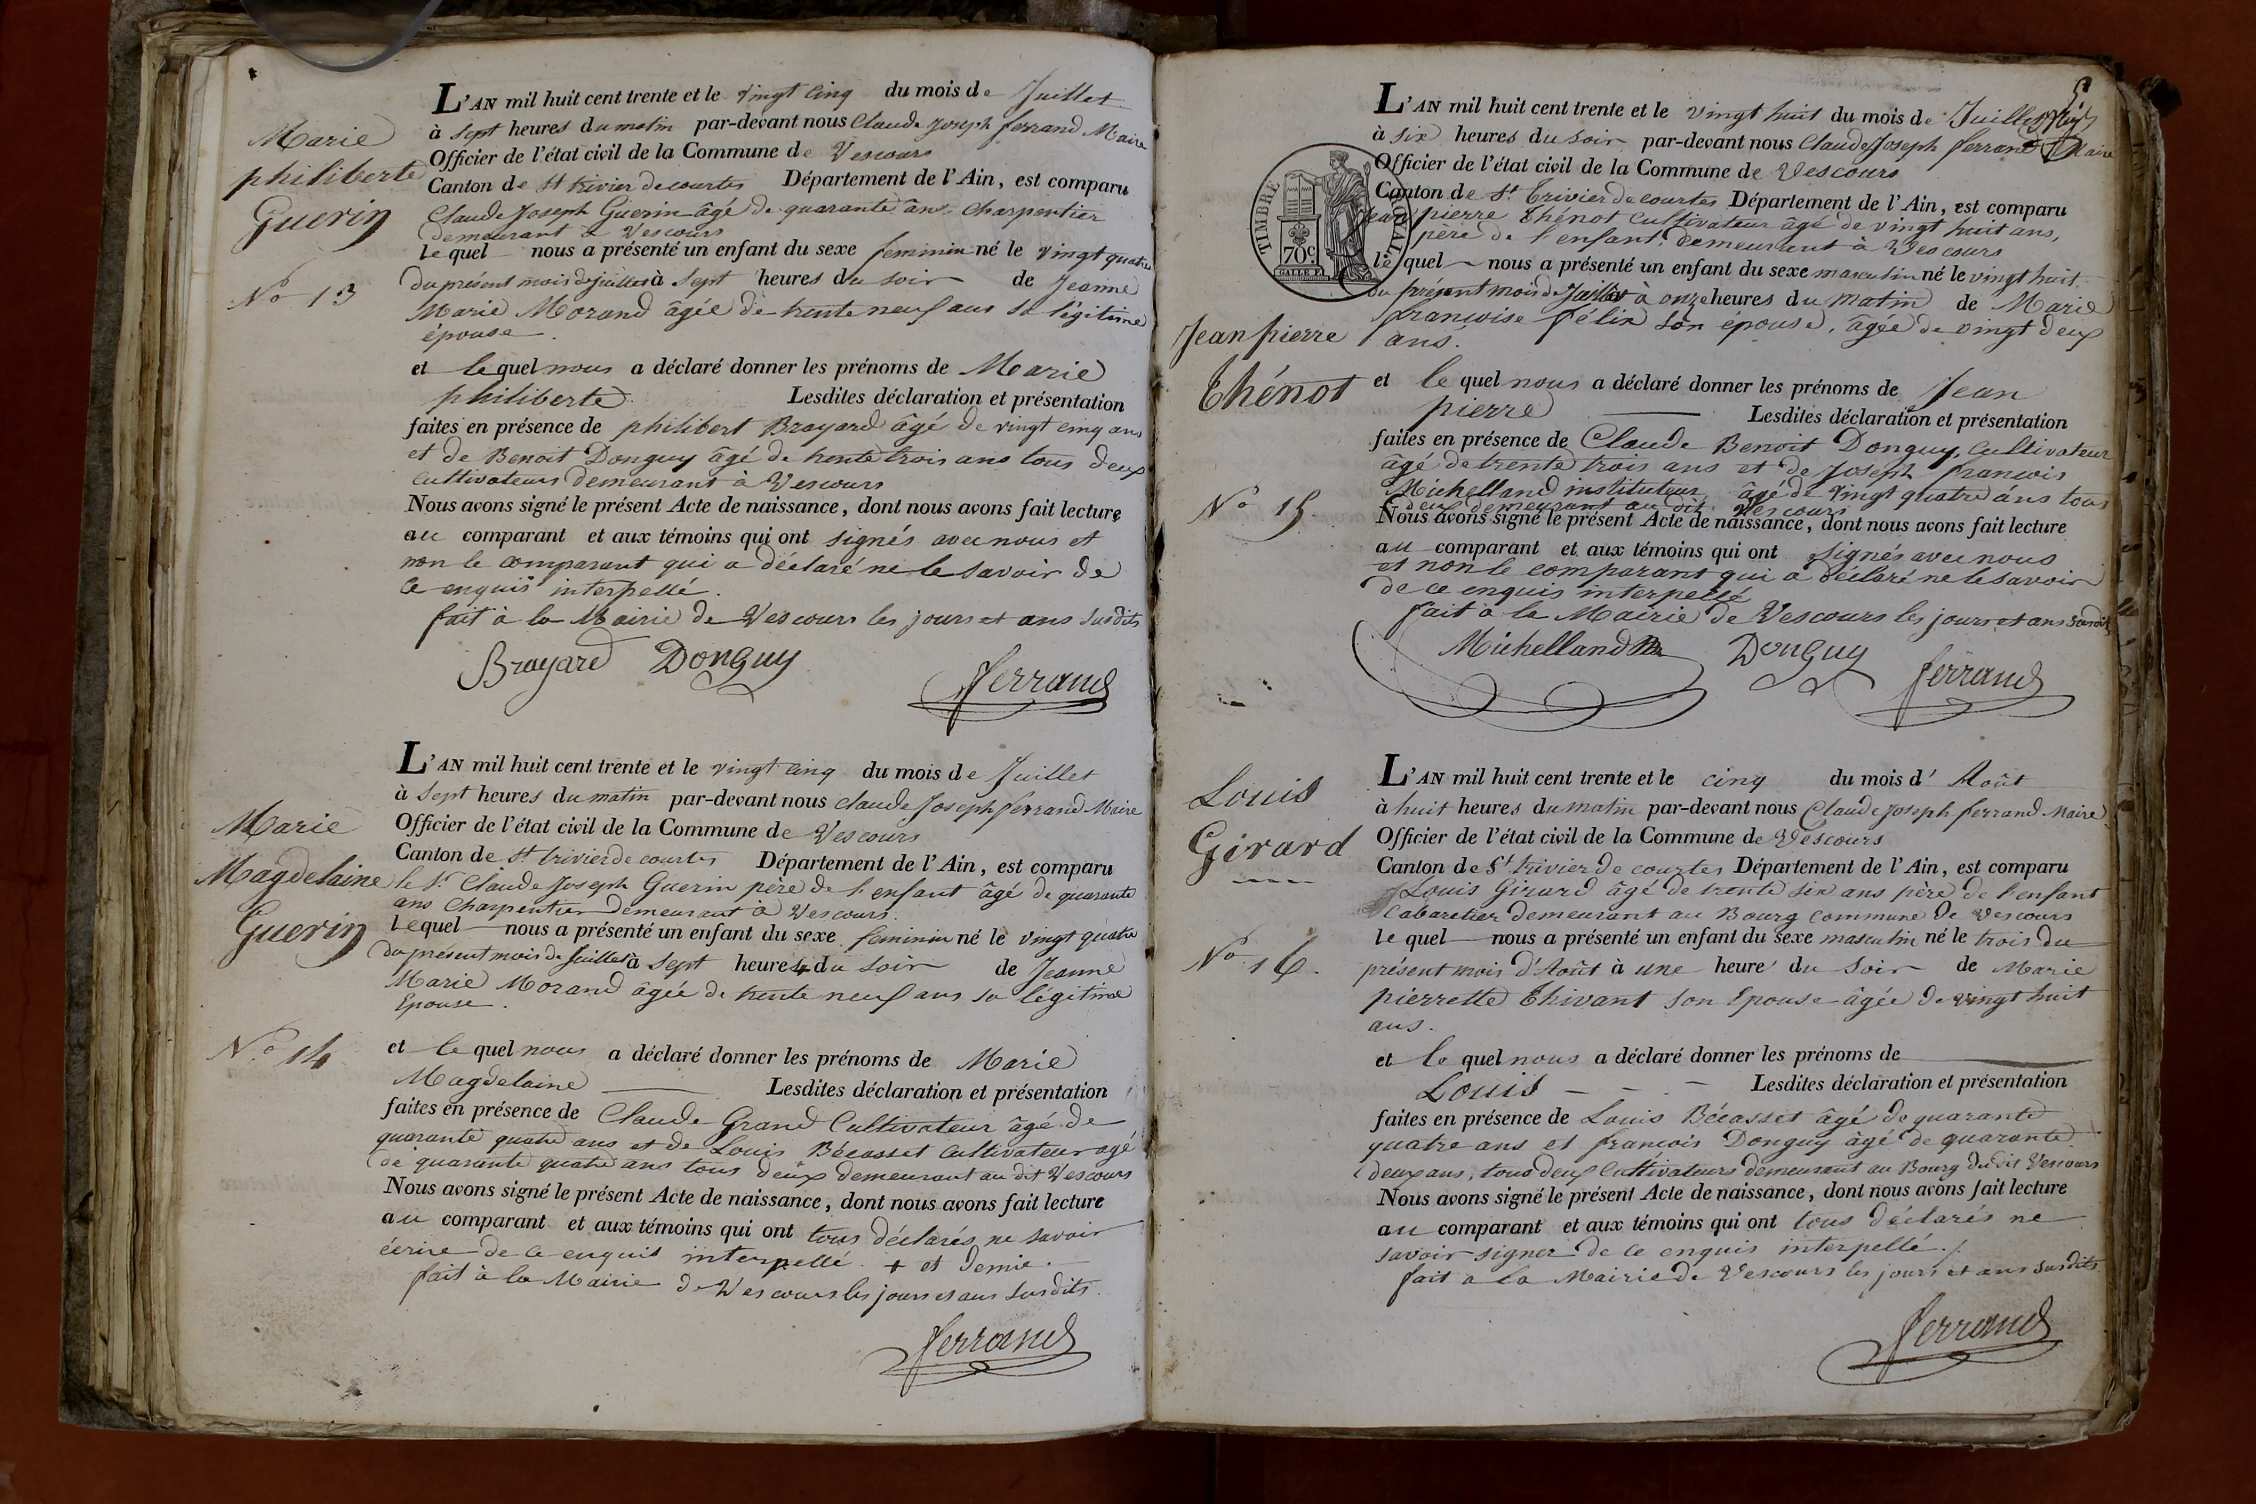 Marie
philiberte
Guerin
No 13
L'AN mil huit cent trente et le vingt cinq du mois de Juillet
à sept heures du matin par-devant nous Claude Joseph ferrand Maire
Officier de l'état civil de la Commune de Vescours
Canton de St trivier de courtes Département de l'Ain, est comparu
Claude Joseph Guerin âgé de quarante ans charpentier
demeurant à Vescours
lequel nous a présenté un enfant du sexe feminin né le vingt quatre
du présent mois de Juillet à sept heures du soir de Jeanne
Marie Morand âgée de trente neuf ans sa légitime
épouse.
et le quel nous a déclaré donner les prénoms de Marie
philiberte. Lesdites déclaration et présentation
faites en présence de philibert Brayard âgé de vingt cinq ans
et de Benoit Donguy âgé de trente trois ans tous deux
cultivateurs demeurant à Vescours
Nous avons signé le présent Acte de naissance, dont nous avons fait lecture
au comparant et aux témoins qui ont signés avec nous et
non le comparant qui a déclaré ne le savoir de
ce enquis interpellé.
fait à la Mairie de Vescours les jours et ans susdits
Brayard Donguy
ferrand
Marie
Magdelaine
Guerin
No 14
L'AN mil huit cent trente et le vingt cinq du mois de Juillet
à sept heures du matin par-devant nous claude Joseph ferrand Maire
Officier de l'état civil de la Commune de Vescours
Canton de St trivier de courtes Département de l'Ain, est comparu
le Sr Claude Joseph Guerin père de l'enfant âgé de quarante
ans charpentier demeurant à Vescours.
lequel nous a présenté un enfant du sexe feminin né le vingt quatre
du présent mois de Juillet à sept heures + du soir de Jeanne
Marie Morand âgée de trente neuf ans sa légitime
Epouse.
et le quel nous a déclaré donner les prénoms de Marie
Magdelaine Lesdites déclaration et présentation
faites en présence de Claude Grand Cultivateur âgé de
quarante quatre ans et de Louis Bécasset cultivateur agé
de quarante quatre ans tous deux demeurant au dit Vescours
Nous avons signé le présent Acte de naissance, dont nous avons fait lecture
au comparant et aux témoins qui ont tous déclarés ne savoir
écrire de ce enquis interpellé. + et demie.
fait à la Mairie de Vescours les jours et ans susdits.
ferrand
TIMBRE ROYAL
70c
L'AN mil huit cent trente et le vingt huit du mois de Juillet
à six heures du soir par-devant nous Claude Joseph ferrand Maire
Officier de l'état civil de la Commune de Vescours
Canton de St Trivier de courtes Département de l'Ain, est comparu
Jean pierre Thénot Cultivateur âgé de vingt huit ans,
père de l'enfant, demeurant à Vescours
lequel nous a présenté un enfant du sexe masculin né le vingt huit
du présent mois de Juillet à onze heures du matin de Marie
françoise félix son épouse, âgée de vingt deux
ans.
Jean pierre
Thénot
No 15.
et le quel nous a déclaré donner les prénoms de Jean
pierre Lesdites déclaration et présentation
faites en présence de Claude Benoit Donguy, Cultivateur
âgé de trente trois ans et de Joseph françois
Michelland instituteur, âgé de vingt quatre ans tous
deux demeurant au dit Vescours
Nous avons signé le présent Acte de naissance, dont nous avons fait lecture
au comparant et aux témoins qui ont signés avec nous
et non le comparant qui a déclaré ne le savoir
de ce enquis interpellé
fait à la Mairie de Vescours les jours et ans susdits
Michelland Donguy
ferrand
Louis
Girard
No 16.
L'AN mil huit cent trente et le cinq du mois d'Août
à huit heures du matin par-devant nous Claude Joseph ferrand Maire
Officier de l'état civil de la Commune de Vescours
Canton de St trivier de courtes Département de l'Ain, est comparu
Louis Girard âgé de trente six ans père de l'enfant
Cabaretier demeurant au Bourg commune de Vescours
lequel nous a présenté un enfant du sexe masculin né le trois du
présent mois d'Août à une heure du soir de Marie
pierrette Thivant son Epouse âgée de vingt huit
ans.
et le quel nous a déclaré donner les prénoms de
Louis Lesdites déclaration et présentation
faites en présence de Louis Bécasset âgé de quarante
quatre ans et françois Donguy âgé de quarante
deux ans, tous deux Cultivateurs demeurant au Bourg du dit Vescours
Nous avons signé le présent Acte de naissance, dont nous avons fait lecture
au comparant et aux témoins qui ont tous déclarés ne
savoir signer de ce enquis interpellé./.
fait à la Mairie de Vescours les jours et ans susdits
ferrand